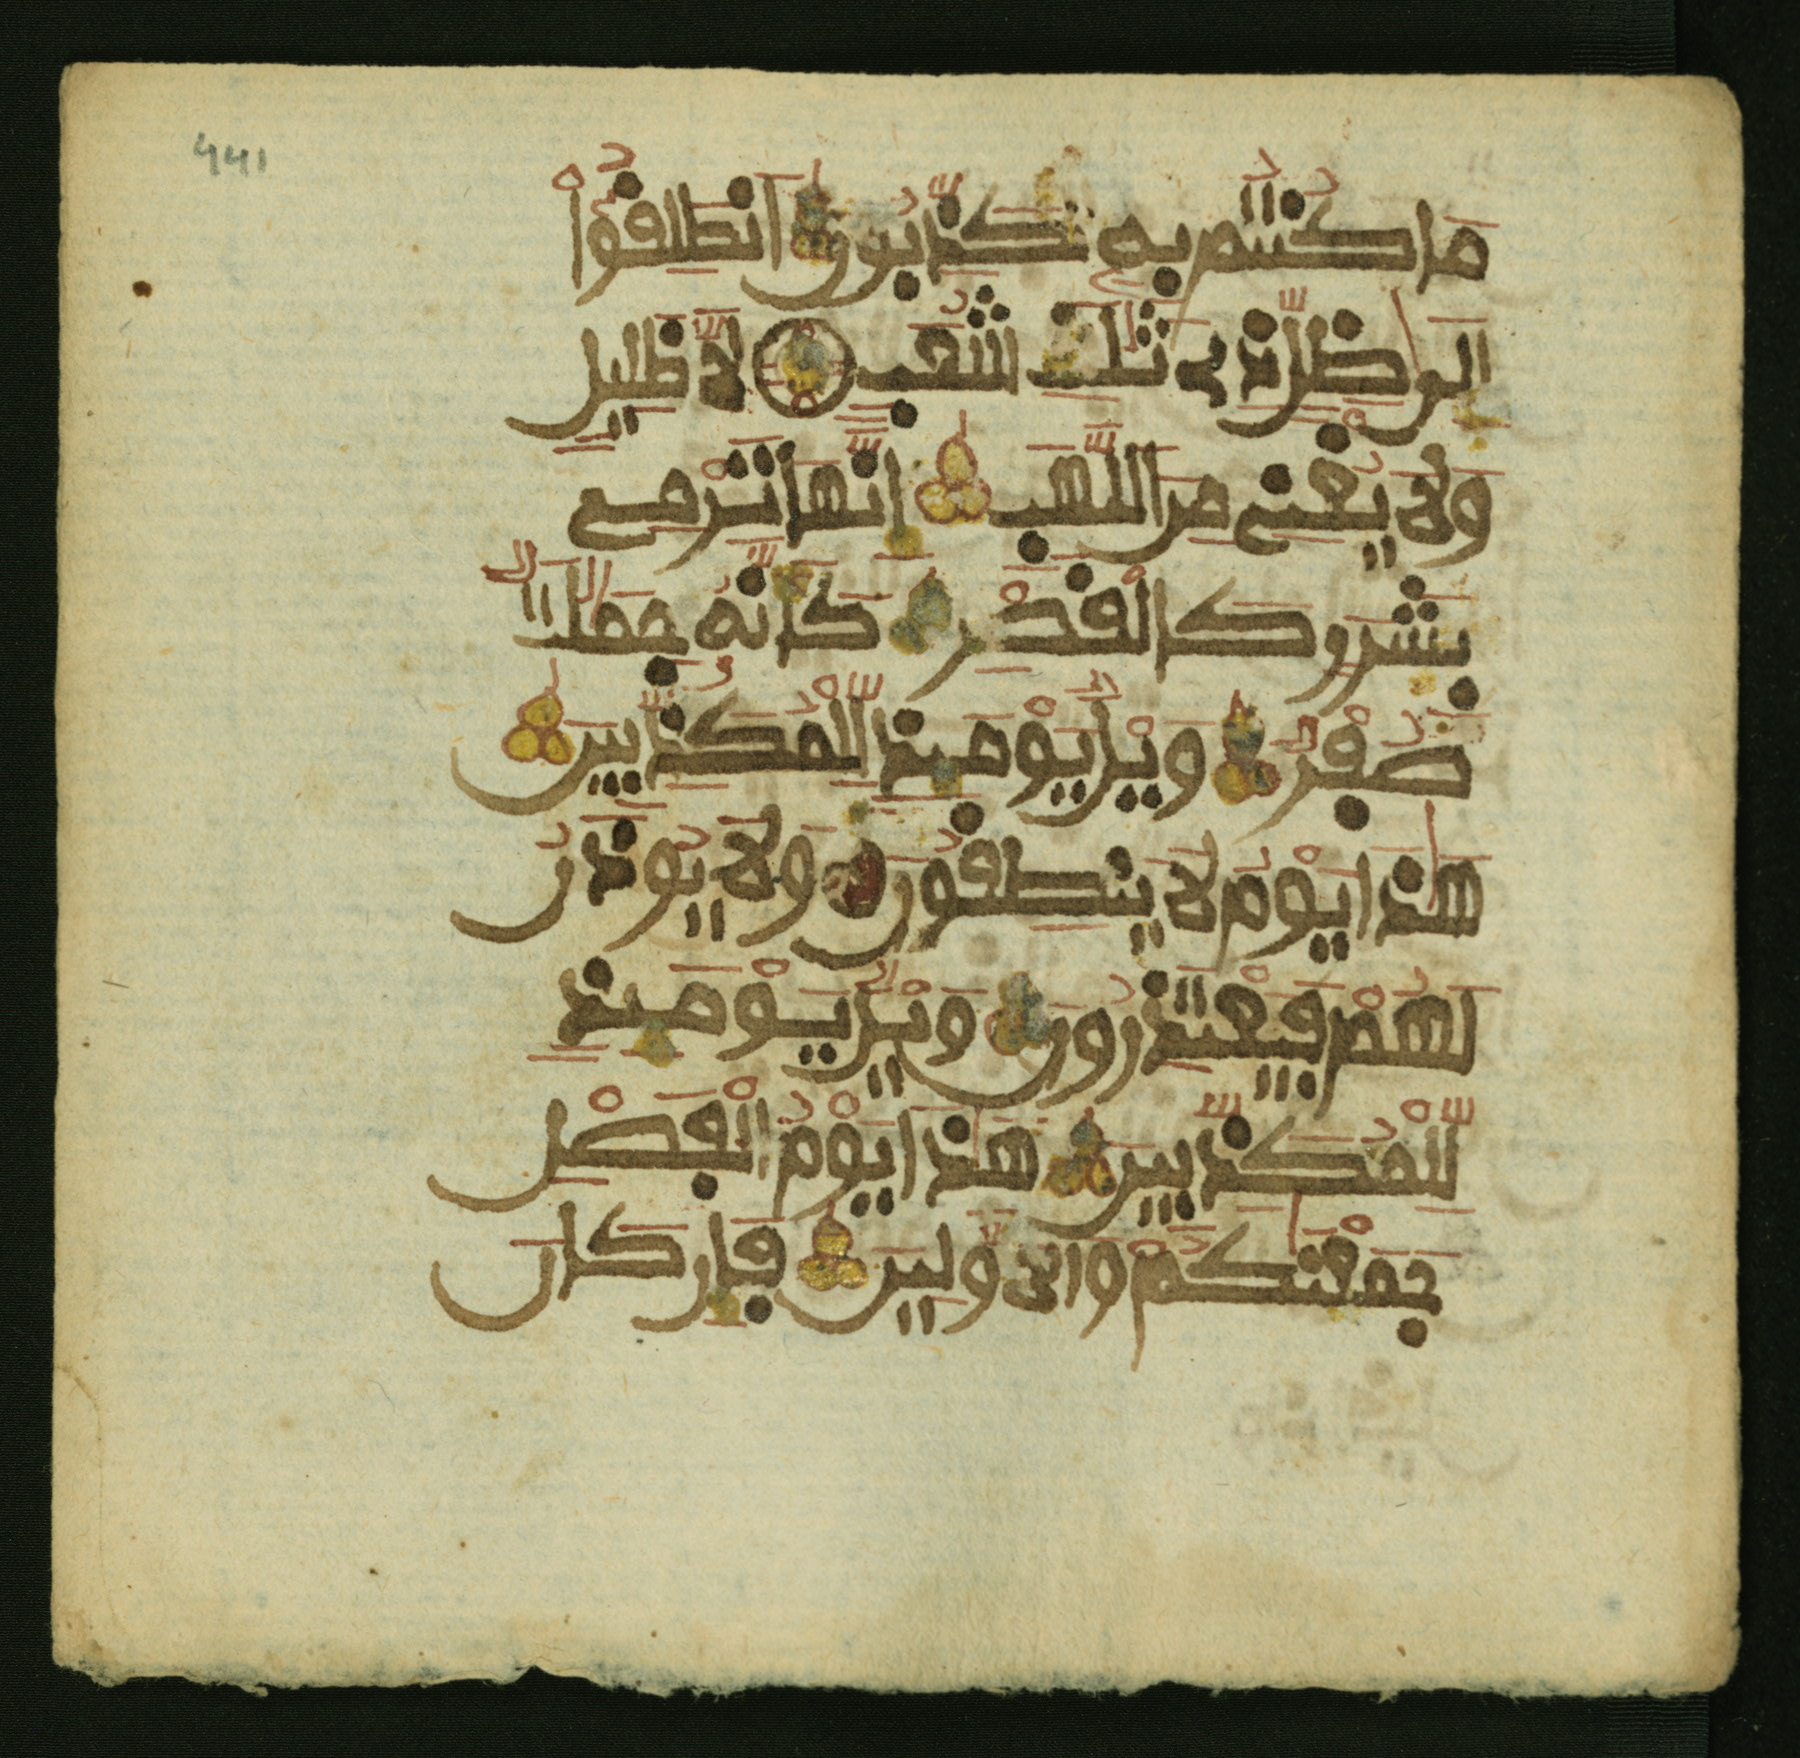 441
ما كنتم به تكذبون انطلقوا
الى ظل ذي ثلث شعب لا ظليل
ولا يغني من اللهب انها ترمي
بشرر كالقصر كانه جملت
صفر ويل يومئذ للمكذبين
هذا يوم لا ينطقون ولا يوذن
لهم فيعتذرون ويل يومئذ
للمكذبين هذا يوم الفصل
جمعنكم والاولين فان كان